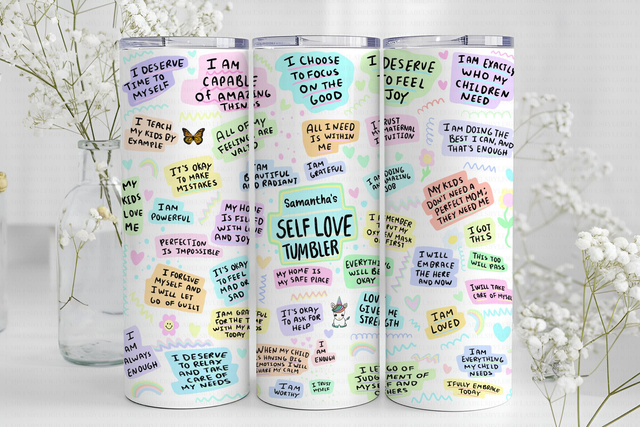 I DESERVE
TIME TO
MYSELF
I AM
CAPABLE
OF AMAZING
THINGS
I TEACH
MY KIDS BY
EXAMPLE
ALL OF MY
FEELINGS ARE
VALID
IT'S OKAY
TO MAKE
MISTAKES
MY
KIDS
LOVE
ME
I AM
POWERFUL
MY HOME
IS FILLED
WITH LOVE
AND JOY
PERFECTION
IS IMPOSSIBLE
I FORGIVE
MYSELF AND
I WILL LET
GO OF GUILT
IT'S OKAY
TO FEEL
MAD OR
SAD
I AM GRATEFUL
FOR THE T
WITH MY KIDS
TODAY
I AM
ALWAYS
ENOUGH
I DESERVE
TO RELAX
AND TAKE
CARE OF
MY NEEDS
I CHOOSE
TO FOCUS
ON THE
GOOD
ALL I NEED
IS WITHIN
ME
I AM
BEAUTIFUL
AND RADIANT
I AM
GRATEFUL
Samantha's
SELF LOVE
TUMBLER
MY HOME IS
MY SAFE PLACE
EVERYTHING
WILL BE
OKAY
IT'S OKAY
TO ASK FOR
HELP
WHEN MY CHILD
IS HAVING BIG
EMOTIONS I WILL
SHARE MY CALM
I AM
ENOUGH
I AM
WORTHY
I TRUST
MYSELF
DESERVE
TO FEEL
JOY
I AM EXACTLY
WHO MY
CHILDREN
NEED
TRUST
MATERNAL
INTUITION
I AM DOING THE
BEST I CAN, AND
THAT'S ENOUGH
DOING
AMAZING
JOB
MY KIDS
DON'T NEED A
PERFECT MOM;
THEY NEED ME
I GOT
THIS
I WILL
EMBRACE
THE HERE
AND NOW
THIS TOO
WILL PASS
I WILL TAKE
CARE OF MYSELF
LOVE
GIVE ME
STRENGTH
I AM
LOVED
I AM
EVERYTHING
MY CHILD
NEEDS
I LET GO OF
JUDGMENT OF
MYSELF AND
OTHERS
I FULLY EMBRACE
TODAY